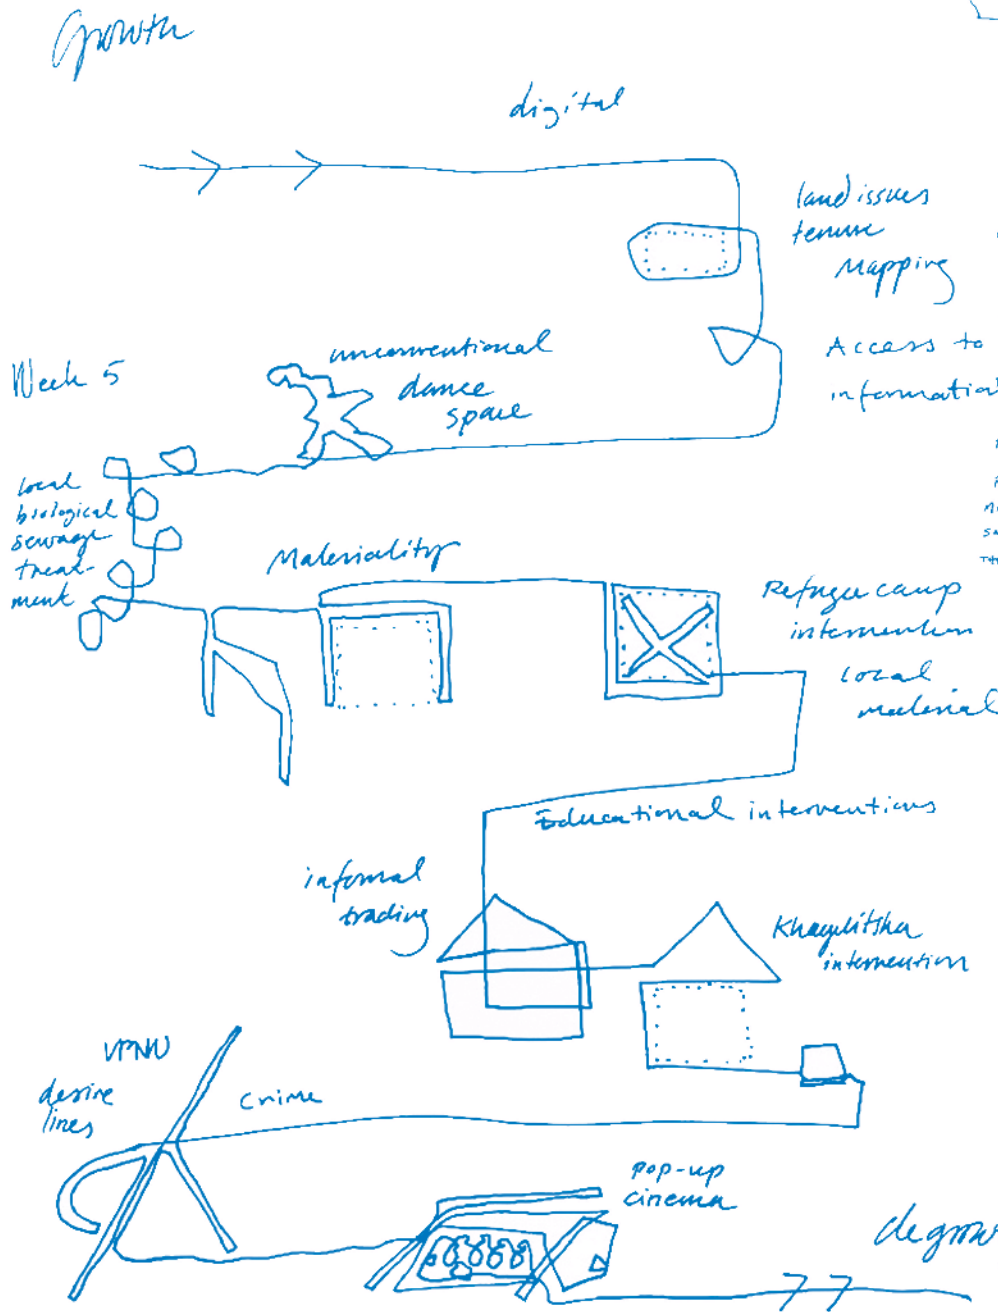 Growth
digital
land issues
tenure
Mapping
Access to
information
unconventional
dance
space
Week 5
local
biological
sewage
treat-
ment
Materiality
Refugee camp
intervention
local
material
Educational interventions
informal
trading
Khayelitsha
intervention
desire
lines
crime
pop-up
cinema
degrow